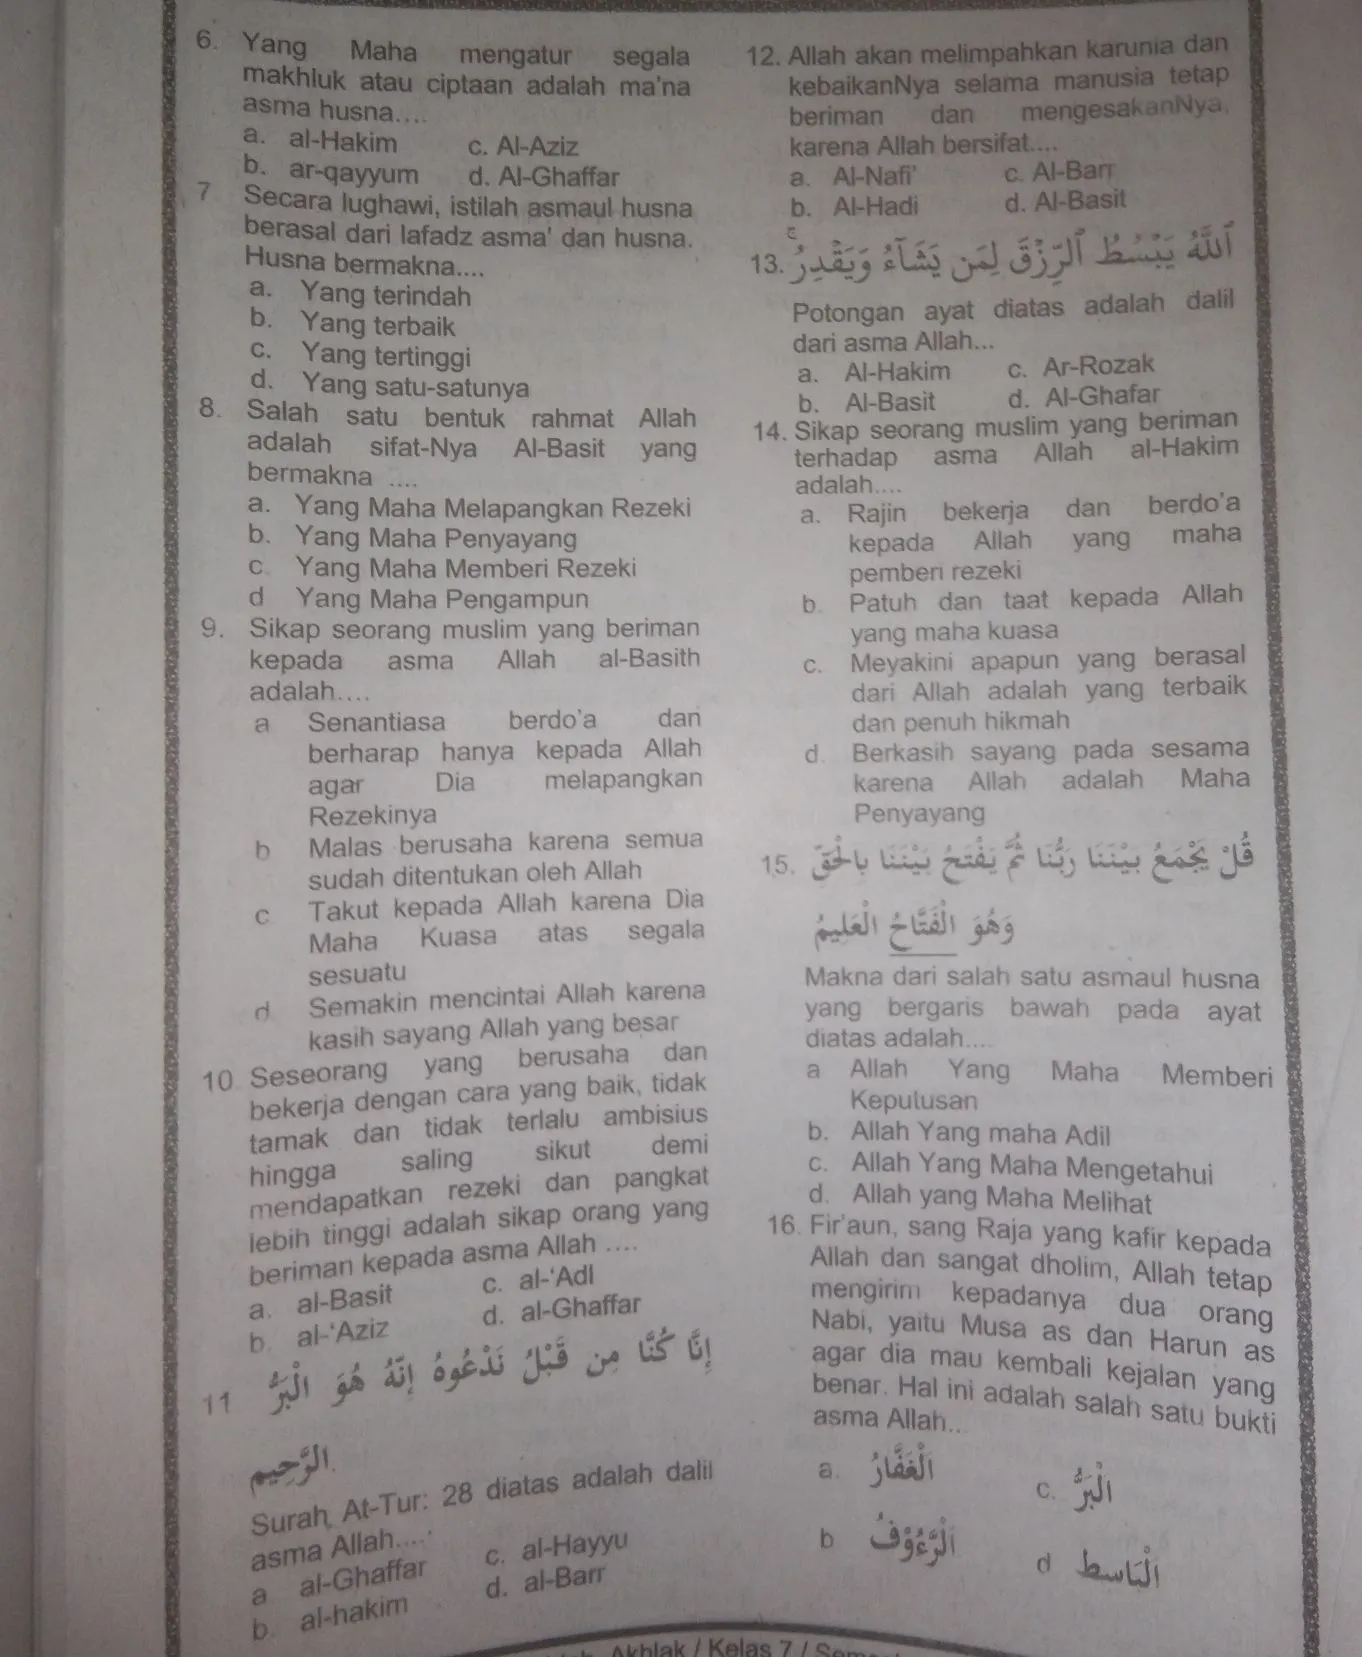 6. Yang Maha mengatur segala
makhluk atau ciptaan adalah ma'na
asma husna....
a. al-Hakim c. Al-Aziz
b. ar-qayyum d. Al-Ghaffar
7 Secara lughawi, istilah asmaul husna
berasal dari lafadz asma' dan husna.
Husna bermakna....
a. Yang terindah
b. Yang terbaik
c. Yang tertinggi
d. Yang satu-satunya
8. Salah satu bentuk rahmat Allah
adalah sifat-Nya Al-Basit yang
bermakna ....
a. Yang Maha Melapangkan Rezeki
b. Yang Maha Penyayang
c. Yang Maha Memberi Rezeki
d Yang Maha Pengampun
9. Sikap seorang muslim yang beriman
kepada asma Allah al-Basith
adalah....
a Senantiasa berdo'a dan
berharap hanya kepada Allah
agar Dia melapangkan
Rezekinya
b Malas berusaha karena semua
sudah ditentukan oleh Allah
c Takut kepada Allah karena Dia
Maha Kuasa atas segala
sesuatu
d Semakin mencintai Allah karena
kasih sayang Allah yang besar
10 Seseorang yang berusaha dan
bekerja dengan cara yang baik, tidak
tamak dan tidak terlalu ambisius
hingga saling sikut demi
mendapatkan rezeki dan pangkat
lebih tinggi adalah sikap orang yang
beriman kepada asma Allah ....
a. al-Basit c. al-'Adl
b. al-'Aziz d. al-Ghaffar
11 إِنَّا كُنَّا مِن قَبْلُ نَدْعُوهُ إِنَّهُ هُوَ الْبَرُّ
الرَّحِيم.
Surah At-Tur: 28 diatas adalah dalil
asma Allah....
a al-Ghaffar c. al-Hayyu
b. al-hakim d. al-Barr
12. Allah akan melimpahkan karunia dan
kebaikanNya selama manusia tetap
beriman dan mengesakanNya,
karena Allah bersifat....
a. Al-Nafi' c. Al-Barr
b. Al-Hadi d. Al-Basit
13. ٱللَّهُ يَبْسُطُ ٱلرِّزْقَ لِمَن يَشَآءُ وَيَقْدِرُ ۚ
Potongan ayat diatas adalah dalil
dari asma Allah...
a. Al-Hakim c. Ar-Rozak
b. Al-Basit d. Al-Ghafar
14. Sikap seorang muslim yang beriman
terhadap asma Allah al-Hakim
adalah....
a. Rajin bekerja dan berdo'a
kepada Allah yang maha
pemberi rezeki
b. Patuh dan taat kepada Allah
yang maha kuasa
c. Meyakini apapun yang berasal
dari Allah adalah yang terbaik
dan penuh hikmah
d. Berkasih sayang pada sesama
karena Allah adalah Maha
Penyayang
15. قُلْ يَجْمَعُ بَيْنَنَا رَبُّنَا ثُمَّ يَفْتَحُ بَيْنَنَا بِالْحَقِّ
وَهُوَ الْفَتَّاحُ الْعَلِيمُ
Makna dari salah satu asmaul husna
yang bergaris bawah pada ayat
diatas adalah....
a Allah Yang Maha Memberi
Keputusan
b. Allah Yang maha Adil
c. Allah Yang Maha Mengetahui
d. Allah yang Maha Melihat
16. Fir'aun, sang Raja yang kafir kepada
Allah dan sangat dholim, Allah tetap
mengirim kepadanya dua orang
Nabi, yaitu Musa as dan Harun as
agar dia mau kembali kejalan yang
benar. Hal ini adalah salah satu bukti
asma Allah..
a. الْغَفَّارُ c. الْبَرُّ
b الرَّءُوْفُ d الْبَاسِط
Akhlak / Kelas 7 /